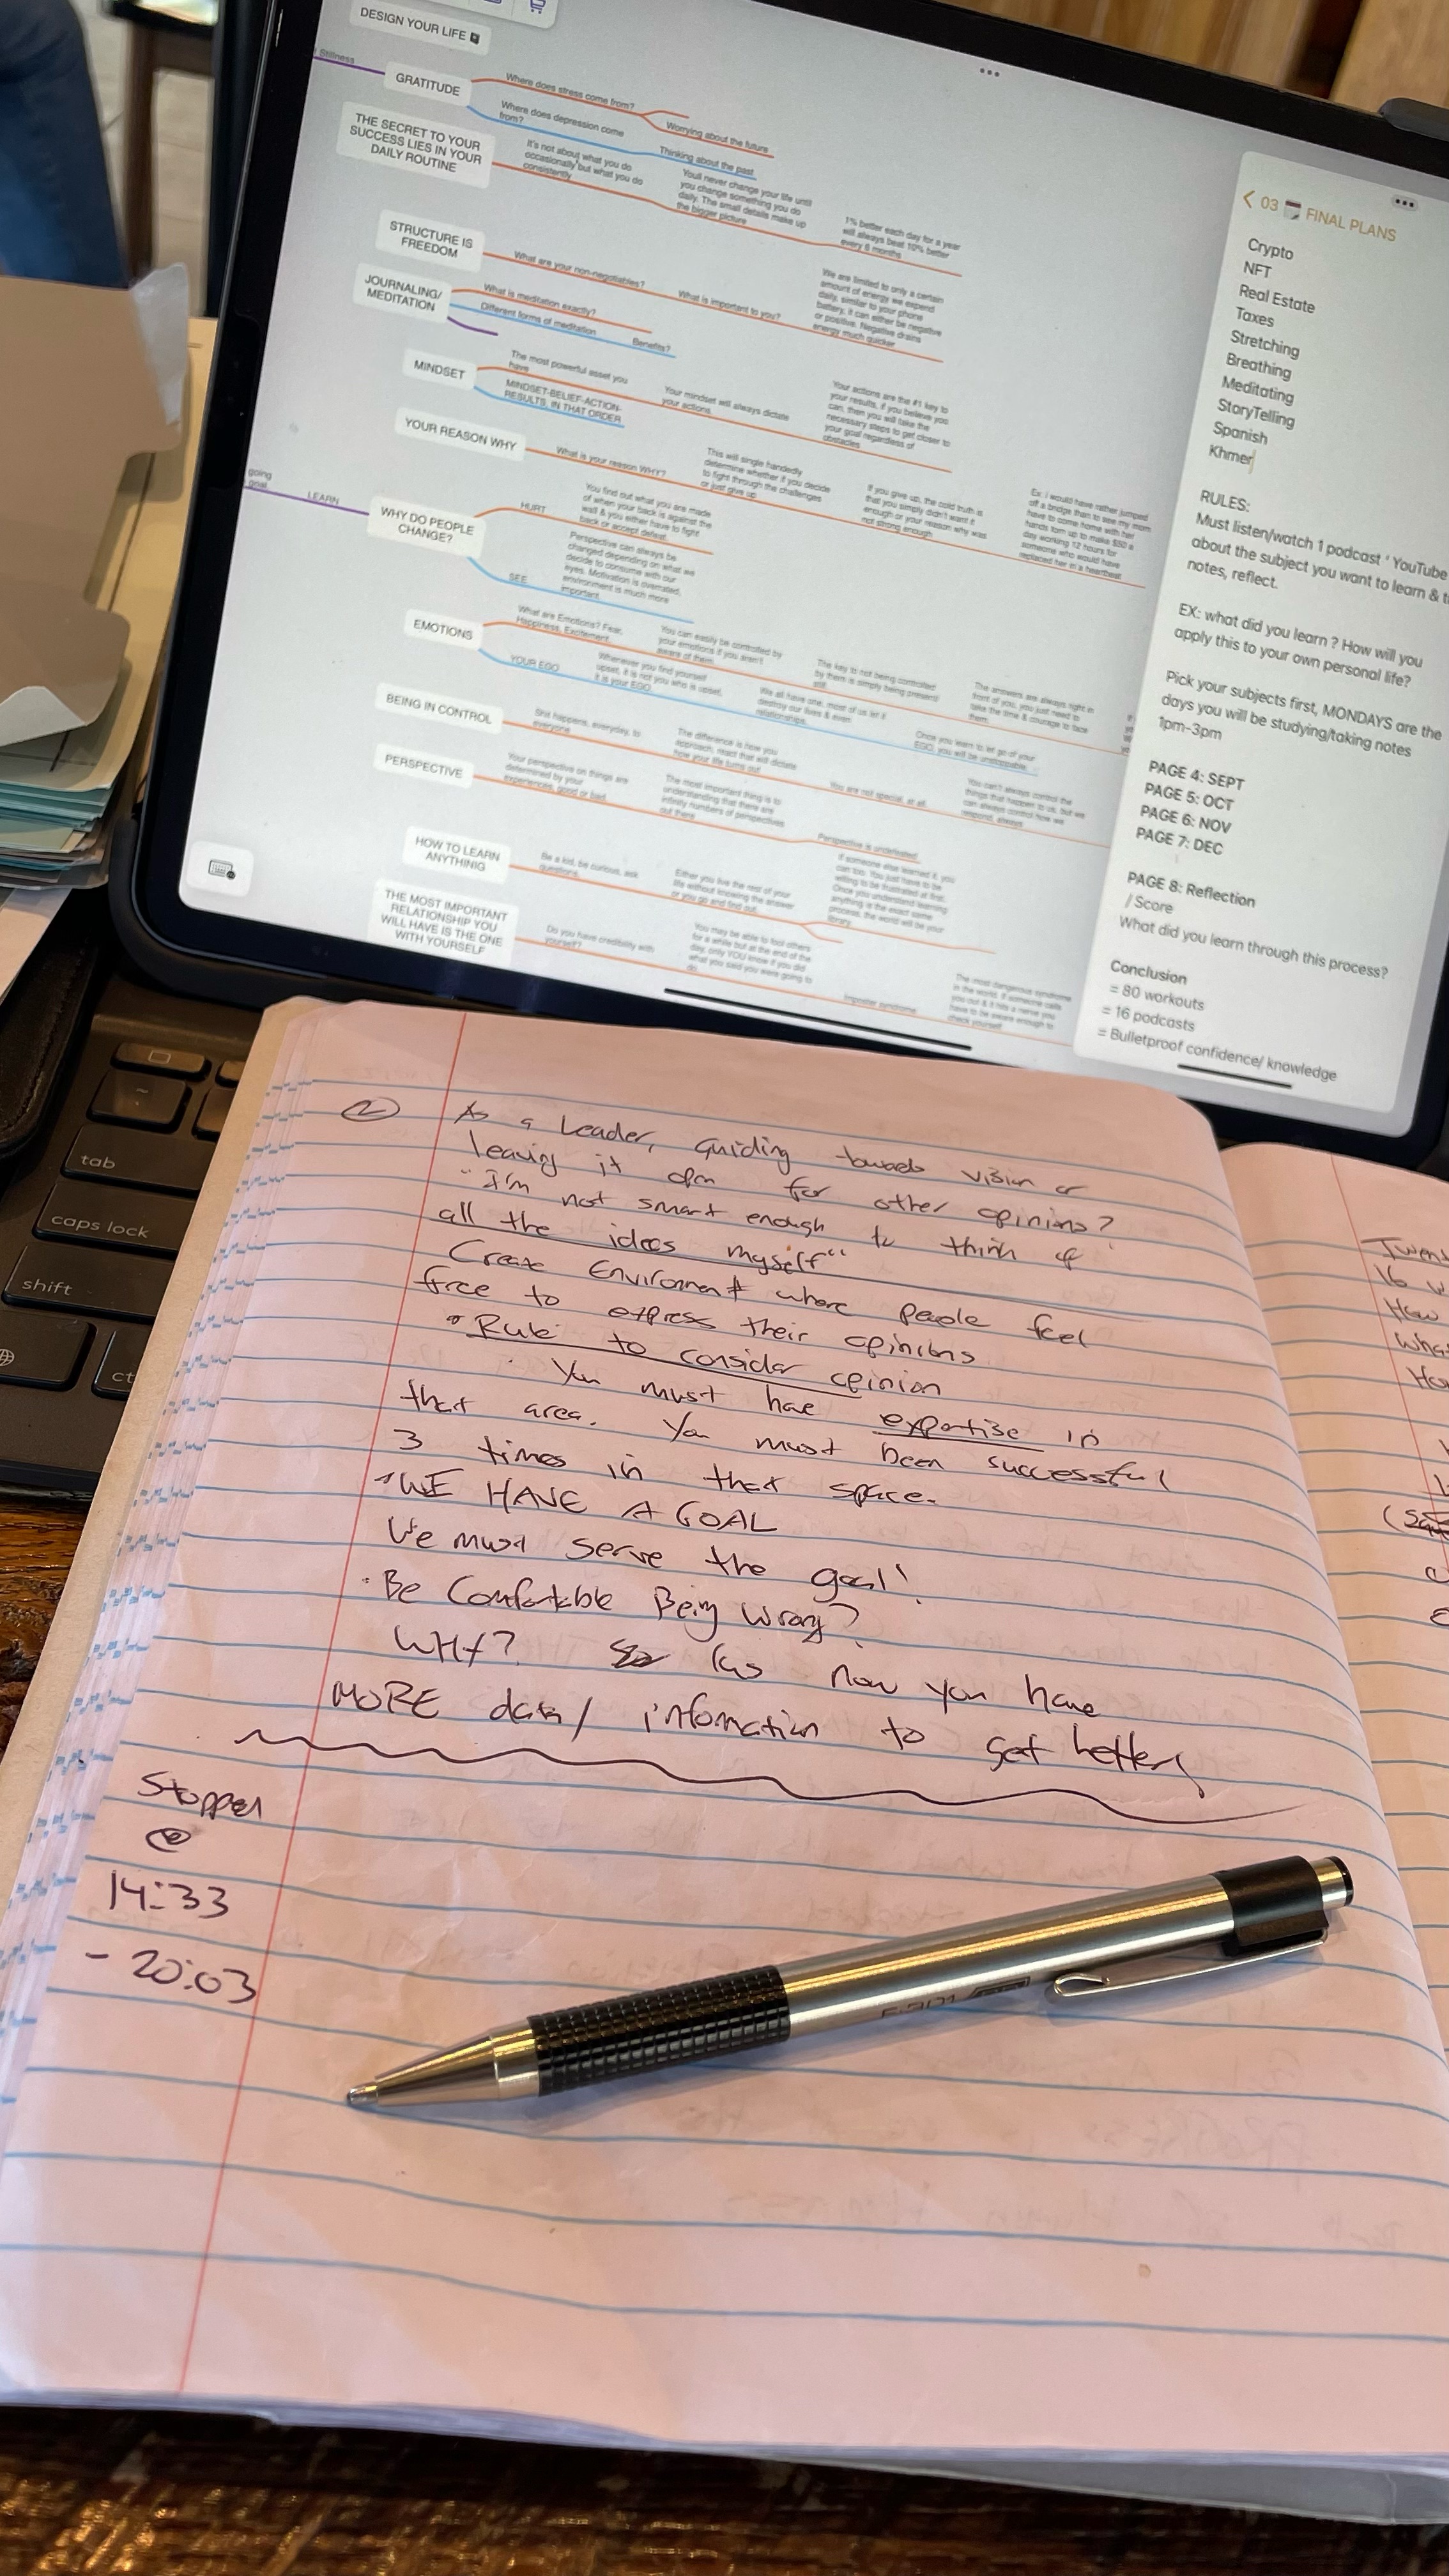 DESIGN YOUR LIFE
Stillness
GRATITUDE
Where does stress come from?
Worrying about the future
Where does depression come
from?
Thinking about the past
THE SECRET TO YOUR
SUCCESS LIES IN YOUR
DAILY ROUTINE
It's not about what you do
occasionally but what you do
consistently
Youll never change your life until
you change something you do
daily. The small details make up
the bigger picture
1% better each day for a year
will always beat 10% better
every 6 months
STRUCTURE IS
FREEDOM
What are your non-negotiables?
What is important to you?
We are limited to only a certain
amount of energy we expend
daily, similar to your phone
battery, it can either be negative
or positive. Negative drains
energy much quicker
JOURNALING/
MEDITATION
What is meditation exactly?
Different forms of meditation
Benefits?
MINDSET
The most powerful asset you
have
Your mindset will always dictate
your actions
Your actions are the #1 key to
your results, if you believe you
can, then you will take the
necessary steps to get closer to
your goal regardless of
obstacles
MINDSET-BELIEF-ACTION-
RESULTS, IN THAT ORDER
YOUR REASON WHY
What is your reason WHY?
This will single handedly
determine whether if you decide
to fight through the challenges
or just give up
If you give up, the cold truth is
that you simply didn't want it
enough or your reason why was
not strong enough
Ex: I would have rather jumped
off a bridge than to see my mom
have to come home with her
hands torn up to make $50 a
day working 12 hours for
someone who would have
replaced her in a heartbeat
going
goal
LEARN
WHY DO PEOPLE
CHANGE?
HURT
You find out what you are made
of when your back is against the
wall & you either have to fight
back or accept defeat
SEE
Perspective can always be
changed depending on what we
decide to consume with our
eyes. Motivation is overrated,
environment is much more
important
EMOTIONS
What are Emotions? Fear,
Happiness, Excitement
You can easily be controlled by
your emotions if you aren't
aware of them
The key to not being controlled
by them is simply being present/
still
The answers are always right in
front of you, you just need to
take the time & courage to face
them
YOUR EGO
Whenever you find yourself
upset, it is not you who is upset,
it is your EGO
We all have one, most of us let it
destroy our lives & even
relationships
Once you learn to let go of your
EGO, you will be unstoppable
BEING IN CONTROL
Shit happens, everyday, to
everyone
The difference is how you
approach, react that will dictate
how your life turns out
You are not special, at all
You can't always control the
things that happen to us, but we
can always control how we
respond, always
PERSPECTIVE
Your perspective on things are
determined by your
experiences, good or bad
The most important thing is to
understanding that there are
infinity numbers of perspectives
out there
Perspective is undefeated
HOW TO LEARN
ANYTHINIG
Be a kid, be curious, ask
questions
Either you live the rest of your
life without knowing the answer
or you go and find out
If someone else learned it, you
can too. You just have to be
willing to be frustrated at first.
Once you understand learning
anything is the exact same
process, the world will be your
library
THE MOST IMPORTANT
RELATIONSHIP YOU
WILL HAVE IS THE ONE
WITH YOURSELF
Do you have credibility with
yourself?
You may be able to fool others
for a while but at the end of the
day, only YOU know if you did
what you said you were going to
do
Imposter syndrome
The most dangerous syndrome
in the world. If someone calls
you out & it hits a nerve you
have to be aware enough to
check yourself
03 FINAL PLANS
Crypto
NFT
Real Estate
Taxes
Stretching
Breathing
Meditating
StoryTelling
Spanish
Khmer
RULES:
Must listen/watch 1 podcast ' YouTube
about the subject you want to learn & t
notes, reflect.
EX: what did you learn ? How will you
apply this to your own personal life?
Pick your subjects first, MONDAYS are the
days you will be studying/taking notes
1pm-3pm
PAGE 4: SEPT
PAGE 5: OCT
PAGE 6: NOV
PAGE 7: DEC
PAGE 8: Reflection
/ Score
What did you learn through this process?
Conclusion
= 80 workouts
= 16 podcasts
= Bulletproof confidence/ knowledge
tab
caps lock
shift
ct
2 As a Leader, Guiding towards vision or
leaving it open for other opinions?
"I'm not smart enough to think of
all the ideas myself"
Create Environment where people feel
free to express their opinions
Rule to consider opinion
You must have expertise in
that area. You must been successful
3 times in that space.
WE HAVE A GOAL
We must serve the goal!
Be Comfortable Being Wrong?
WHY? now you have
MORE data/ information to get better
Stopped
@
14:33
- 20:03
16
How
Wha
Ho
F-301